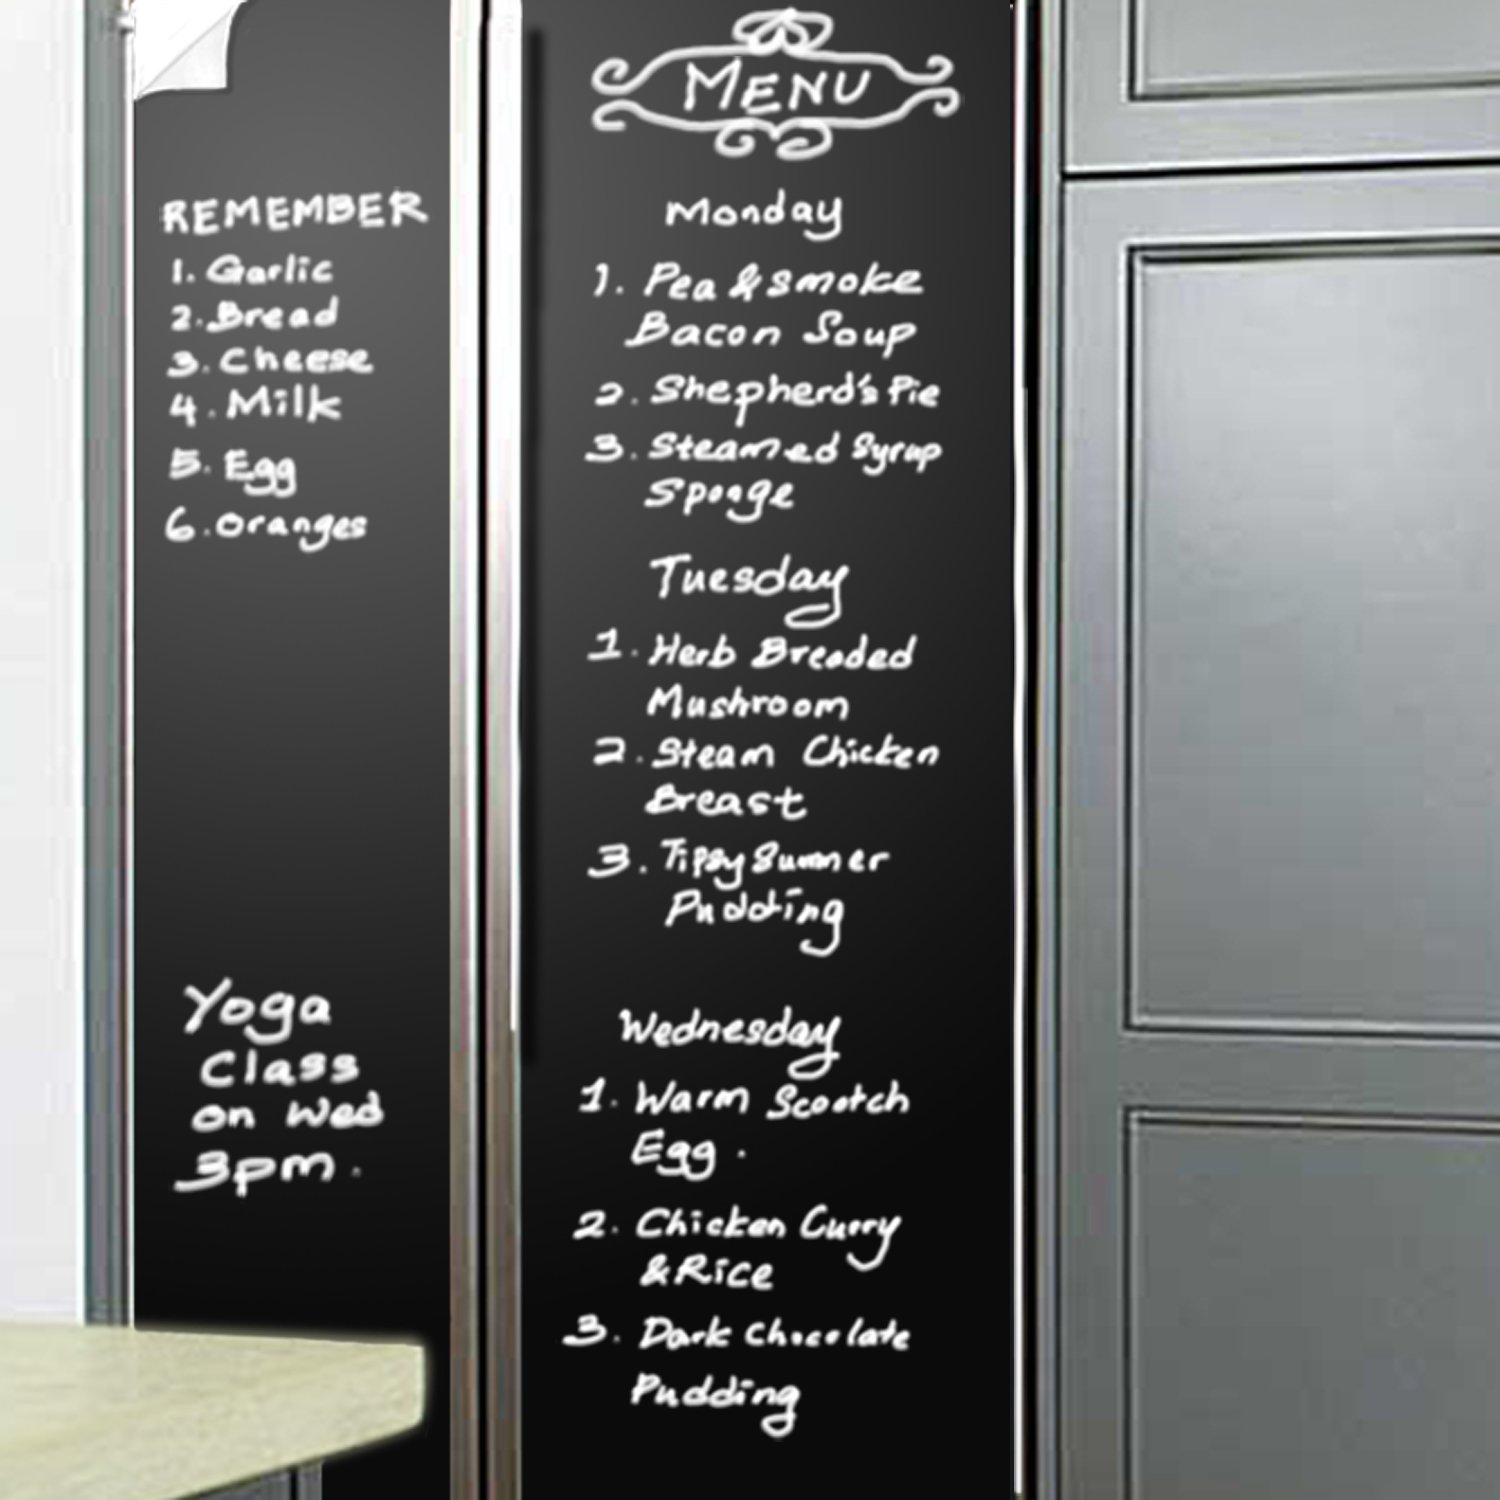 REMEMBER
1. Garlic
2. Bread
3. Cheese
4. Milk
5. Egg
6. Oranges
Yoga
Class
on Wed
3pm.
MENU
Monday
1. Pea & smoke
Bacon Soup
2. Shepherd's Pie
3. Steamed Syrup
Sponge
Tuesday
1. Herb Breaded
Mushroom
2. Steam Chicken
Breast
3. Tipsy Summer
Pudding
Wednesday
1. Warm Scootch
Egg.
2. Chicken Curry
& Rice
3. Dark Chocolate
Pudding